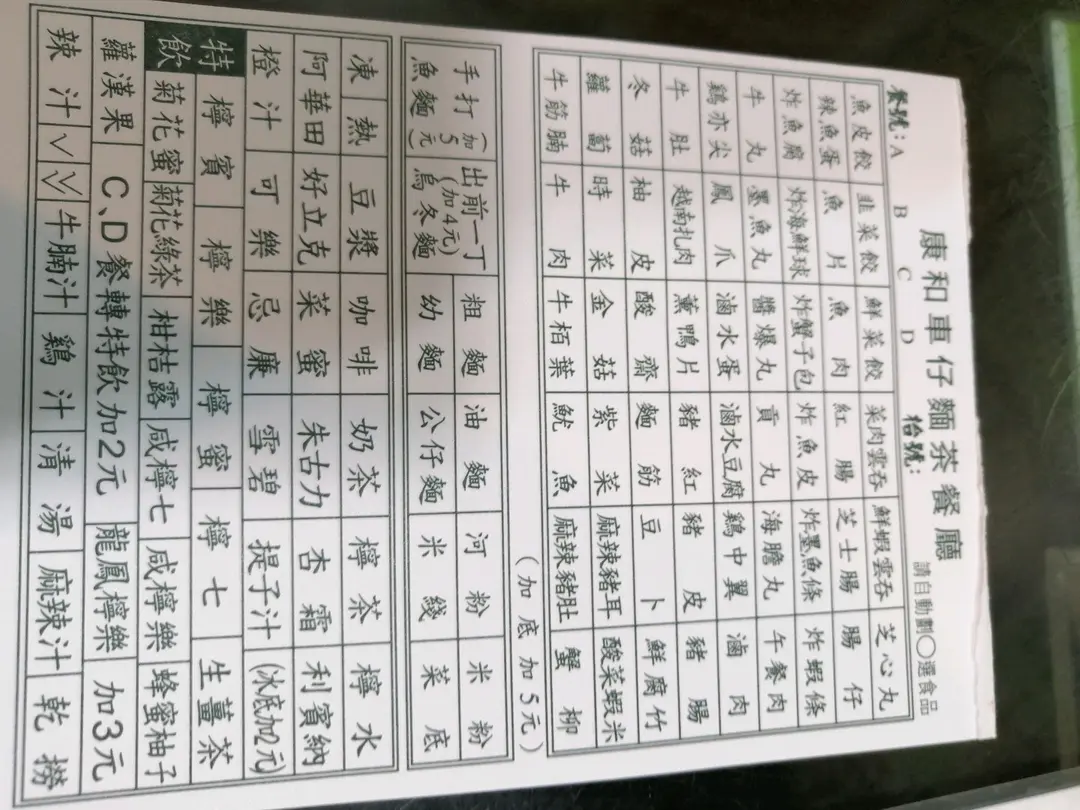 康和車仔麵茶餐廳
餐號:A B C D 枱號: 請自動劃○選食品
魚皮餃 韭菜餃 鮮菜餃 菜肉雲吞 鮮蝦雲吞 芝心丸
辣魚蛋 魚片 魚肉 紅腸 芝士腸 腸仔
炸魚腐 炸海鮮球 炸蟹子包 炸魚皮 炸墨魚條 炸蝦條
牛丸 墨魚丸 醬爆丸 貢丸 海膽丸 午餐肉
鷄亦尖 鳳爪 滷水蛋 滷水豆腐 鷄中翼 滷肉
牛肚 越南扎肉 薰鴨片 豬紅 豬皮 豬腸
冬菇 柚皮 酸齋 麵筋 豆卜 鮮腐竹
蘿蔔 時菜 金菇 紫菜 麻辣豬耳 酸菜蝦米
牛筋腩 牛肉 牛栢葉 魷魚 麻辣豬肚 蟹柳
(加底加5元)
手打魚麵(加5元) 出前一丁(加4元) 粗麵 油麵 河粉 米粉
烏冬麵 幼麵 公仔麵 米綫 菜底
凍 熱 豆漿 咖啡 奶茶 檸茶 檸水
阿華田 好立克 菜蜜 朱古力 杏霜 利賓納
橙汁 可樂 忌廉 雪碧 提子汁 (冰底加2元)
特飲 檸賓 檸樂 檸蜜 檸七 生薑茶
菊花蜜 菊花綠茶 柑桔露 咸檸七 咸檸樂 蜂蜜柚子
羅漢果 C、D餐轉特飲加2元 龍鳳檸樂 加3元
辣汁√√√ 牛腩汁 鷄汁 清湯 麻辣汁 乾撈